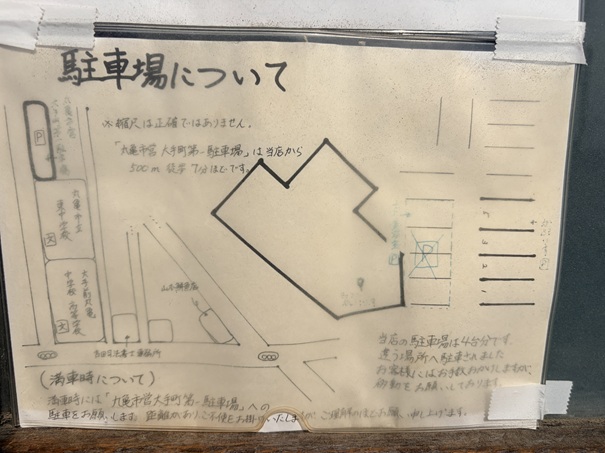 駐車場について
※縮尺は正確ではありません。
「丸亀市営大手町第一駐車場」は当店から
500m 徒歩7分ほどです。
P
丸亀市立
東中学校
文
大手前丸亀
中学校 高等学校
文
P
当店の駐車場は4台分です。
違う場所へ駐車されました
お客様にはお手数おかけしますが、
移動をお願いしております。
(満車時について)
満車時には「丸亀市営大手町第一駐車場」への
駐車をお願いします。距離がありご不便をお掛けいたしますが、ご理解のほどお願い申し上げます。